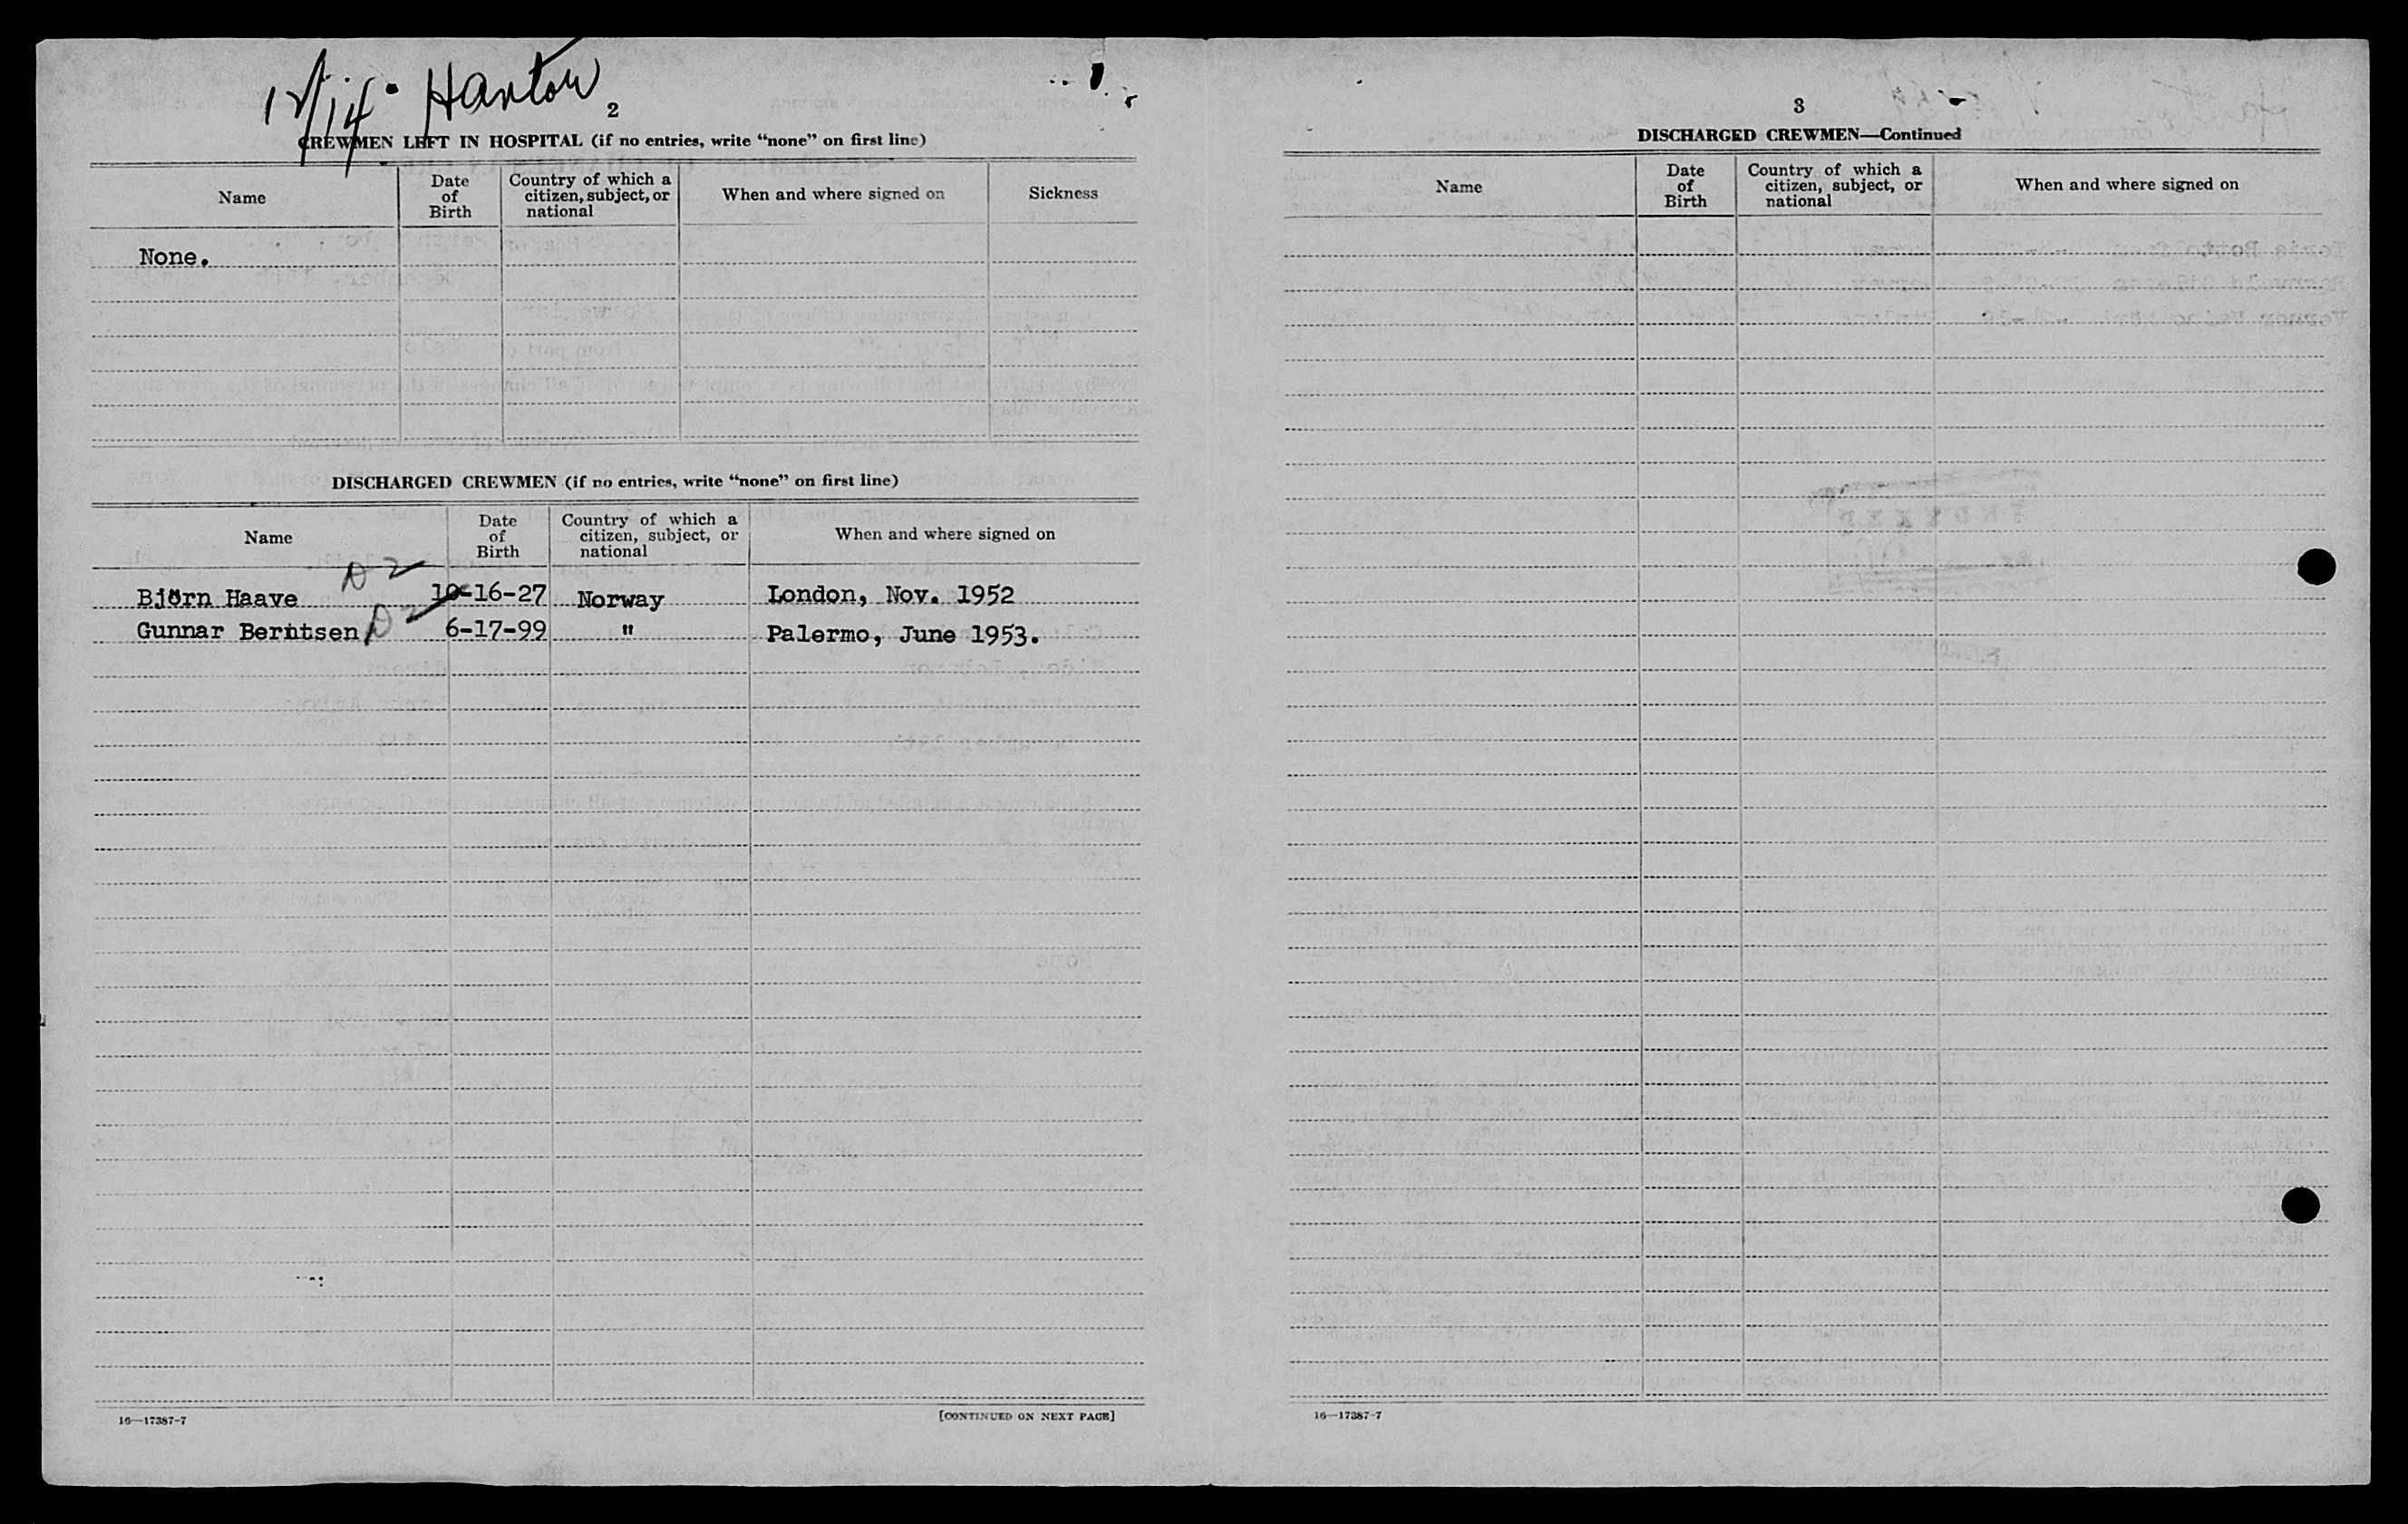 12/14 Havtor
2
CREWMEN LEFT IN HOSPITAL (if no entries, write “none” on first line)
Name
Date of Birth
Country of which a citizen, subject, or national
When and where signed on
Sickness
None.
DISCHARGED CREWMEN (if no entries, write “none” on first line)
Name
Date of Birth
Country of which a citizen, subject, or national
When and where signed on
Björn Haave D2 10-16-27 Norway London, Nov. 1952
Gunnar Berntsen D2 6-17-99 " Palermo, June 1953.
16—17387-7
[CONTINUED ON NEXT PAGE]
3
DISCHARGED CREWMEN—Continued
Name
Date of Birth
Country of which a citizen, subject, or national
When and where signed on
16—17387-7